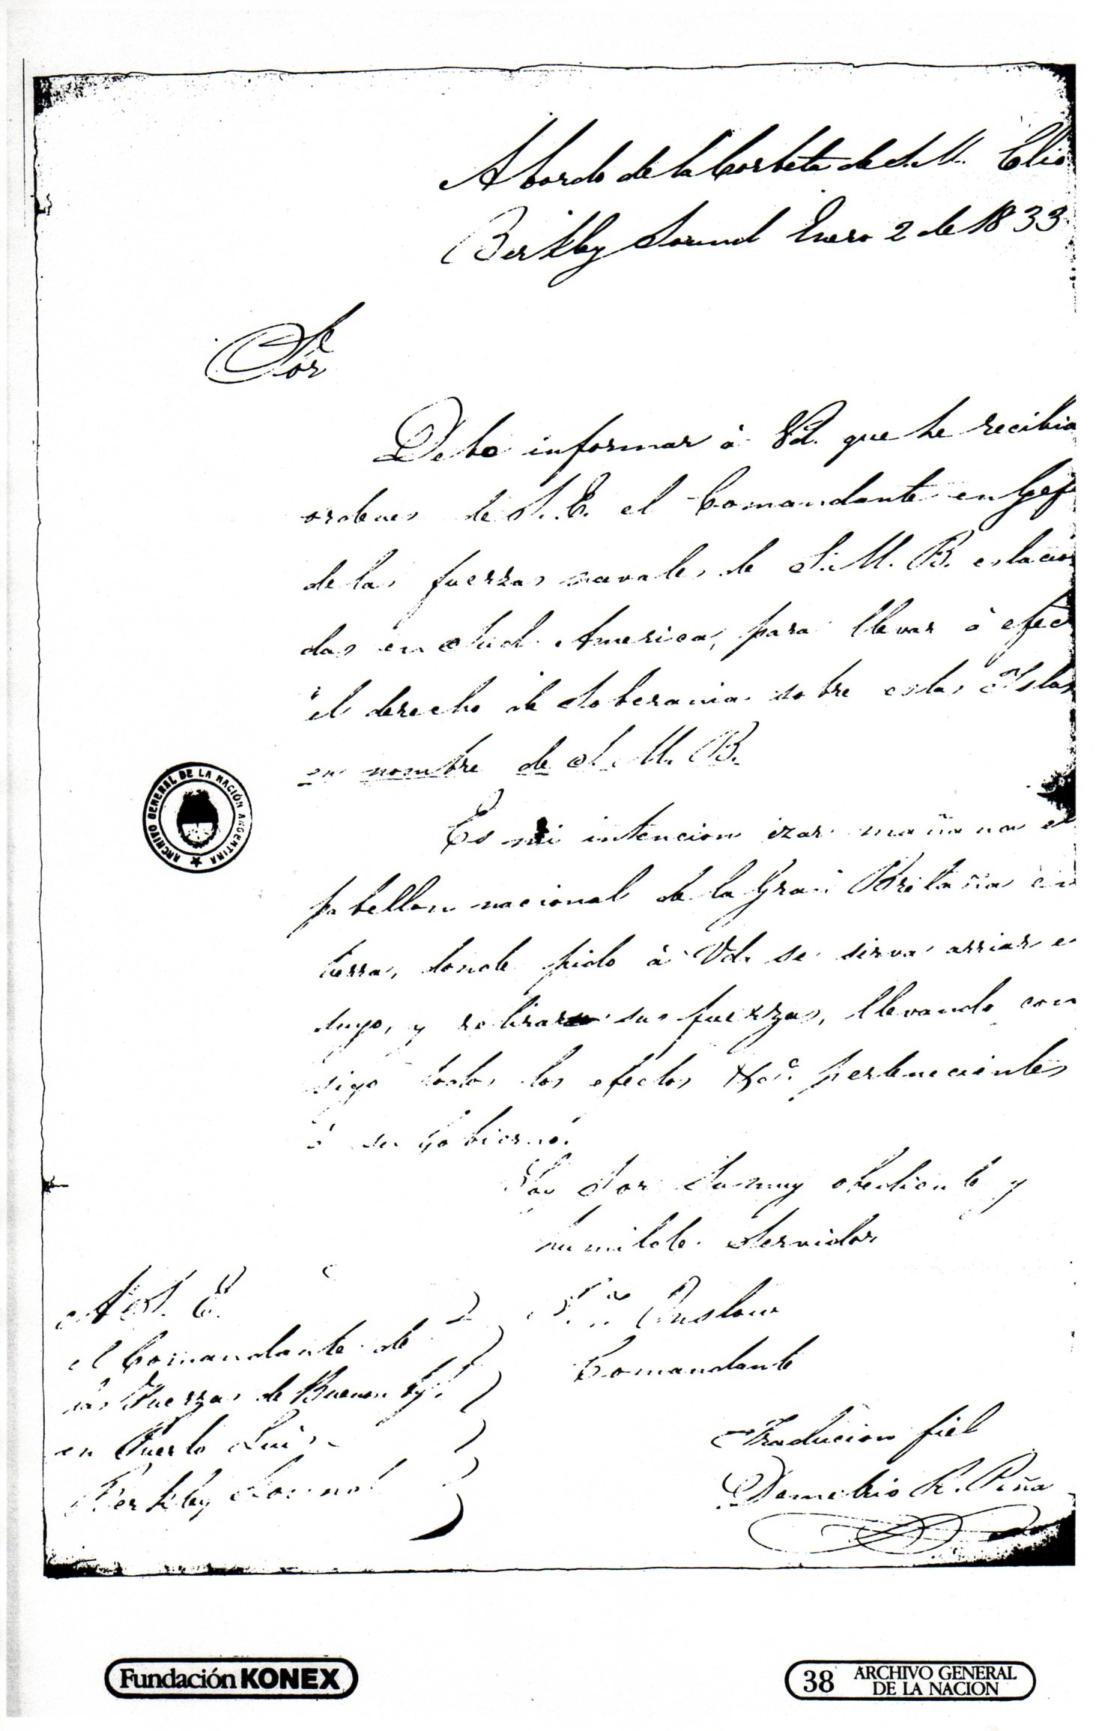 A bordo de la Corbeta de S.M. Clio
Berkley Sound Enero 2 de 1833
Sor
Debo informar à Vd. que he recibid
ordenes de S.E. el Comandante en Gefe
de las fuerzas navales de S.M.B. estacion
das en Sud America, para llevar à efec
el derecho de Soberania sobre estas Yslas
en nombre de S.M.B.
Es mi intencion izar mañana el
pabellon nacional de la Gran Bretaña en
tierra, donde pido à Vd. se sirva arriar el
suyo, y retirar sus fuerzas, llevando con
sigo todos los efectos &ca. pertenecientes
à su Gobierno.
Soy Sor Su muy obediente y
humilde Servidor
Onslow
Comandante
A S.E.
el Comandante de
las Fuerzas de Buenos Ays.
en Puerto Luis
Berkley Sound
Traducion fiel
Demetrio R. Piña
ARCHIVO GENERAL DE LA NACIÓN ARGENTINA
Fundación KONEX
38 ARCHIVO GENERAL
DE LA NACION